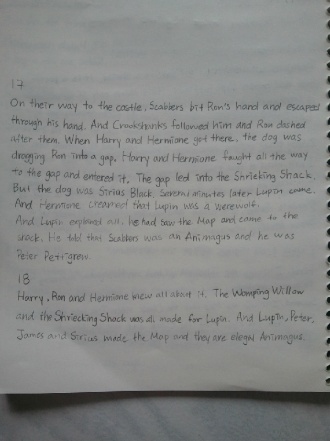 17
On their way to the castle, Scabbers bit Ron's hand and escaped
through his hand. And Crookshanks followed him and Ron dashed
after them. When Harry and Hermione got there, the dog was
dragging Ron into a gap. Harry and Hermione faught all the way
to the gap and entered it. The gap led into the Shrieking Shack.
But the dog was Sirius Black. Several minutes later Lupin came.
And Hermione creamed that Lupin was a werewolf.
And Lupin explained all. he had saw the Map and came to the
shack. He told that Scabbers was an Animagus and he was
Peter Petigrew.
18
Harry, Ron and Hermione knew all about it. The Womping Willow
and the Shriecking Shack was all made for Lupin. And Lupin, Peter,
James and Sirius made the Map and they are elegal Animagus.